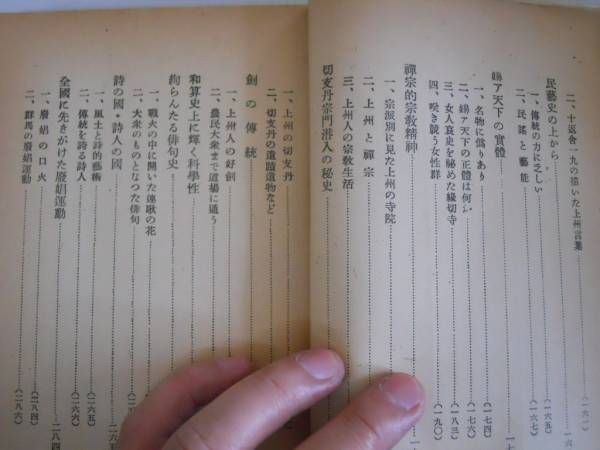 二、十返舍一九の描いた上州言葉……(一六
民藝史の上から……一六
一、傳統の力に乏しい……(一六五)
二、民謠と藝能……(一六七)
嬶ァ天下の實體……一七
一、名物に僞りあり……(一七四)
二、嬶ァ天下の正體は何か……(一七六)
三、女人哀史を祕めた緣切寺……(一八三)
四、咲き競う女性群……(一九〇)
禪宗的宗敎精神
一、宗派別に見た上州の寺院
二、上州と禪宗
三、上州人の宗敎生活
切支丹宗門潛入の秘史
一、上州の切支丹
二、切支丹の遺蹟遺物など
劍の傳統
一、上州人の好劍
二、農民大衆まで道場に通う
和算史上に輝く科學性
絢らんたる俳句史
一、戰火の中に開いた連歌の花
二、大衆のものとなつた俳句
詩の國・詩人の國……二六
一、風土と詩的藝術……(二六五)
二、傳統を誇る詩人……(二六六)
全國に先きがけた廢娼運動……二八四
一、廢娼の口火……(二八四)
二、群馬の廢娼運動……(二八六)